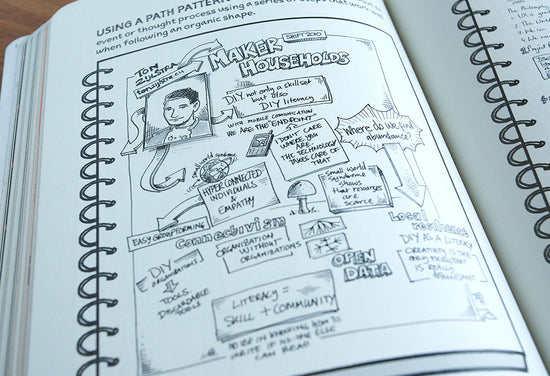 USING A PATH PATTERN
event or thought process using a series of steps that work
when following an organic shape.
TON
ZIJLSTRA
MAKER
HOUSEHOLDS
SHIFT 2010
DIY not only a skillset
but also
DIY literacy
WITH MOBILE COMMUNICATION
WE ARE THE ENDPOINT
I DON'T CARE
WHERE YOU
ARE
THE TECHNOLOGY
TAKES CARE OF
THAT
Where do we find
abundance?
Small world syndrome
HYPERCONNECTED
INDIVIDUALS
& EMPATHY
Small World
Syndrome
shows
that resources
are
scarce
EASY GROUPFORMING
Connectivism
ORGANIZATION
WITHOUT
ORGANIZATIONS
DIY
ORGANIZATIONS
TOOLS
DISCARDABLE
TOOLS
OPEN
DATA
Local
resilience
DIY AS A LITERACY
CREATIVITY IS THE
ONLY
IS REALLY
ABUNDANT
LITERACY =
SKILL + COMMUNITY
NO USE IN KNOWING HOW TO
WRITE IF NO-ONE ELSE
CAN READ